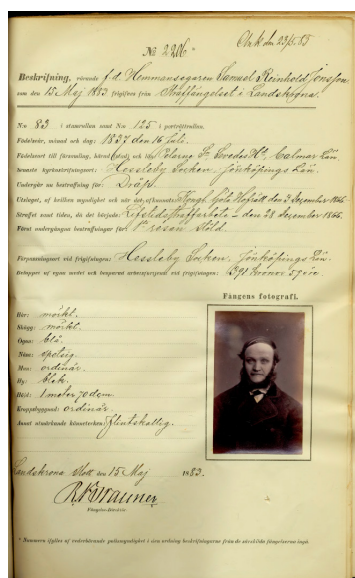 № 2206*
Beskrifning, rörande f.d. Hemmansegaren Samuel Reinhold Jonsson
som den 15 Maj 1883 frigifves från Straffängelset i Landskrona.
N:o 83 i stamrullan samt N:o 125 i porträttrullan.
Födelseår, månad och dag: 1837 den 16 Juli.
Födelseort till församling, härad och län: Pelarne Calmar Län.
Senaste kyrkskrifningsort: Hessleby Socken, Jönköpings Län.
Undergår nu bestraffning för: Dråp.
Utslaget, af hvilken myndighet och när det afkunnats: Kongl. Göta Hofrätt den 3 December 1866.
Straffet samt tiden, då det började: Lifstidsstraffarbete - den 28 December 1866.
Förut undergångna bestraffningar för: 1:a resan Stöld.
Förpassningsort vid frigifningen: Hessleby Socken, Jönköpings Län.
Beloppet af egna medel och besparad arbetspremie vid frigifningen: 1391 kronor 57 öre.
Fångens fotografi.
Hår: mörkt.
Skägg: mörkt.
Ögon: blå.
Näsa: spetsig.
Mun: ordinär.
Hy: blek.
Höjd: 1 meter 70
Kroppsbyggnad: ordinär
Annat utmärkande kännetecken: flintskallig.
Landskrona slott den 15 Maj 1883.
Fängelse-Direktör.
* Numren ifylles af vederbörande polismyndighet i den ordning beskrifningarne från de särskilda fängelserna ingå.